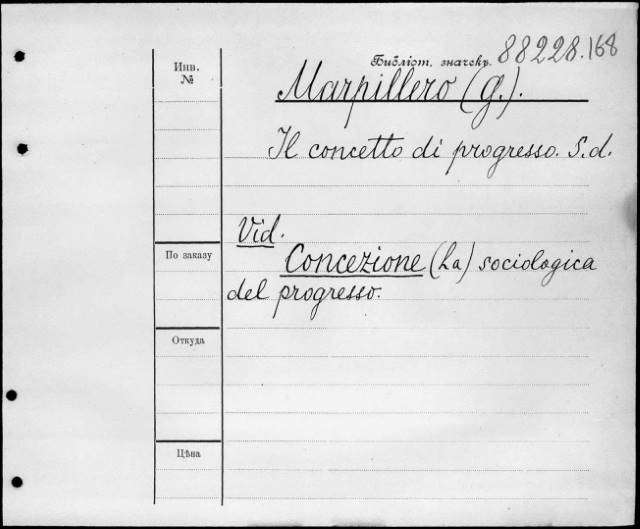 Инв.
№
Библіот. значекъ. 88228.168
Marpillero (G.).
Il concetto di progresso. S.d.
Vid.
По заказу
Concezione (La) sociologica
del progresso.
Откуда
Цѣна